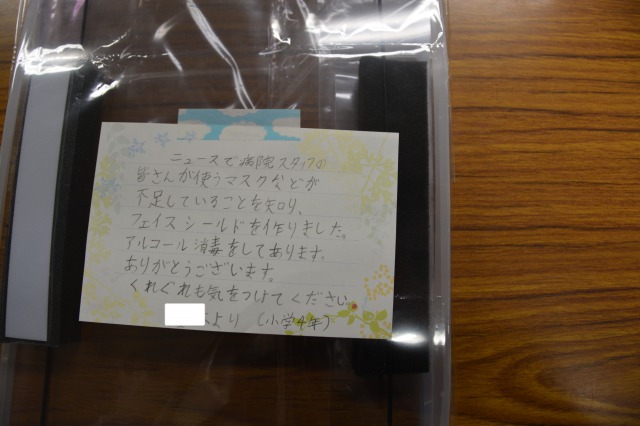 ニュースで病院スタッフの
皆さんが使うマスクなどが
不足していることを知り、
フェイスシールドを作りました。
アルコール消毒をしてあります。
ありがとうございます。
くれぐれも気をつけてください。
より (小学4年)